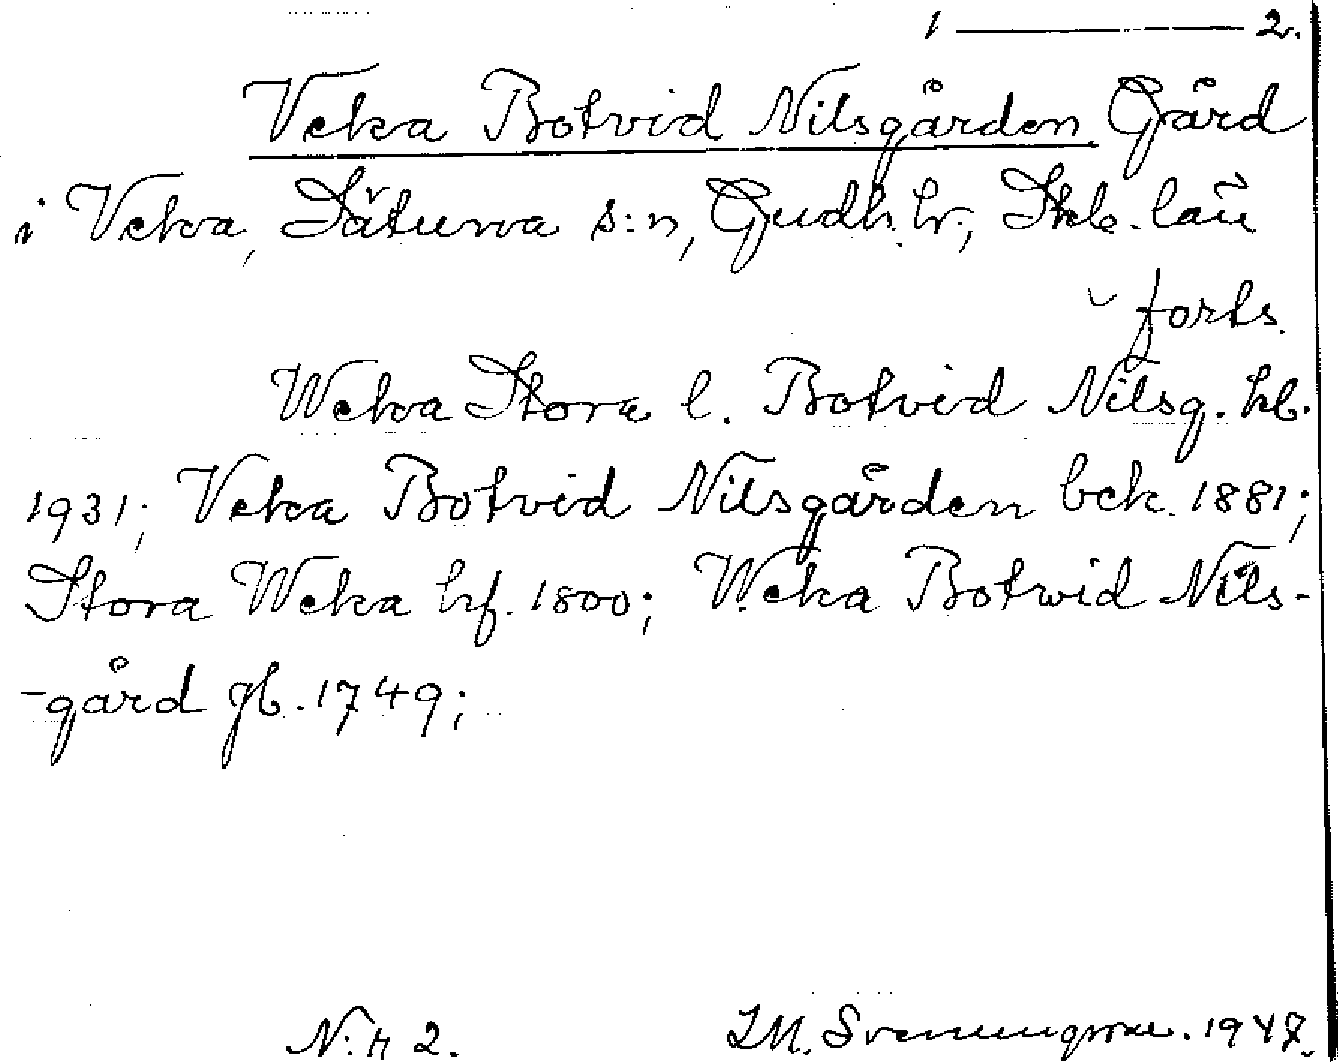 1 ——— 2.
Veka Botvid Nilsgården Gård
i Veka, Sätuna s:n, Gudh. hr; Skb. län
forts.
Weka Stora l. Botvid Nilsg. hb.
1931; Veka Botvid Nilsgården bck. 1881;
Stora Weka hf. 1800; Weka Botwid Nils-
-gård gb. 1749;
N:r 2. I.M. 1947.